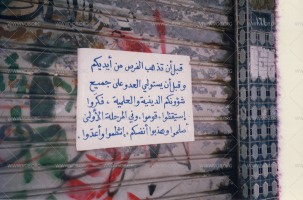 قبل أن تذهب الفرص من أيديكم
وقبل أن يستولي العدو على جميع
شؤونكم الدينية والعلمية ، فكروا
إستيقظوا، قوموا، وفي المرحلة الأولى
أصلحوا وهذبوا أنفسكم، إنتظموا وأعدّوا.